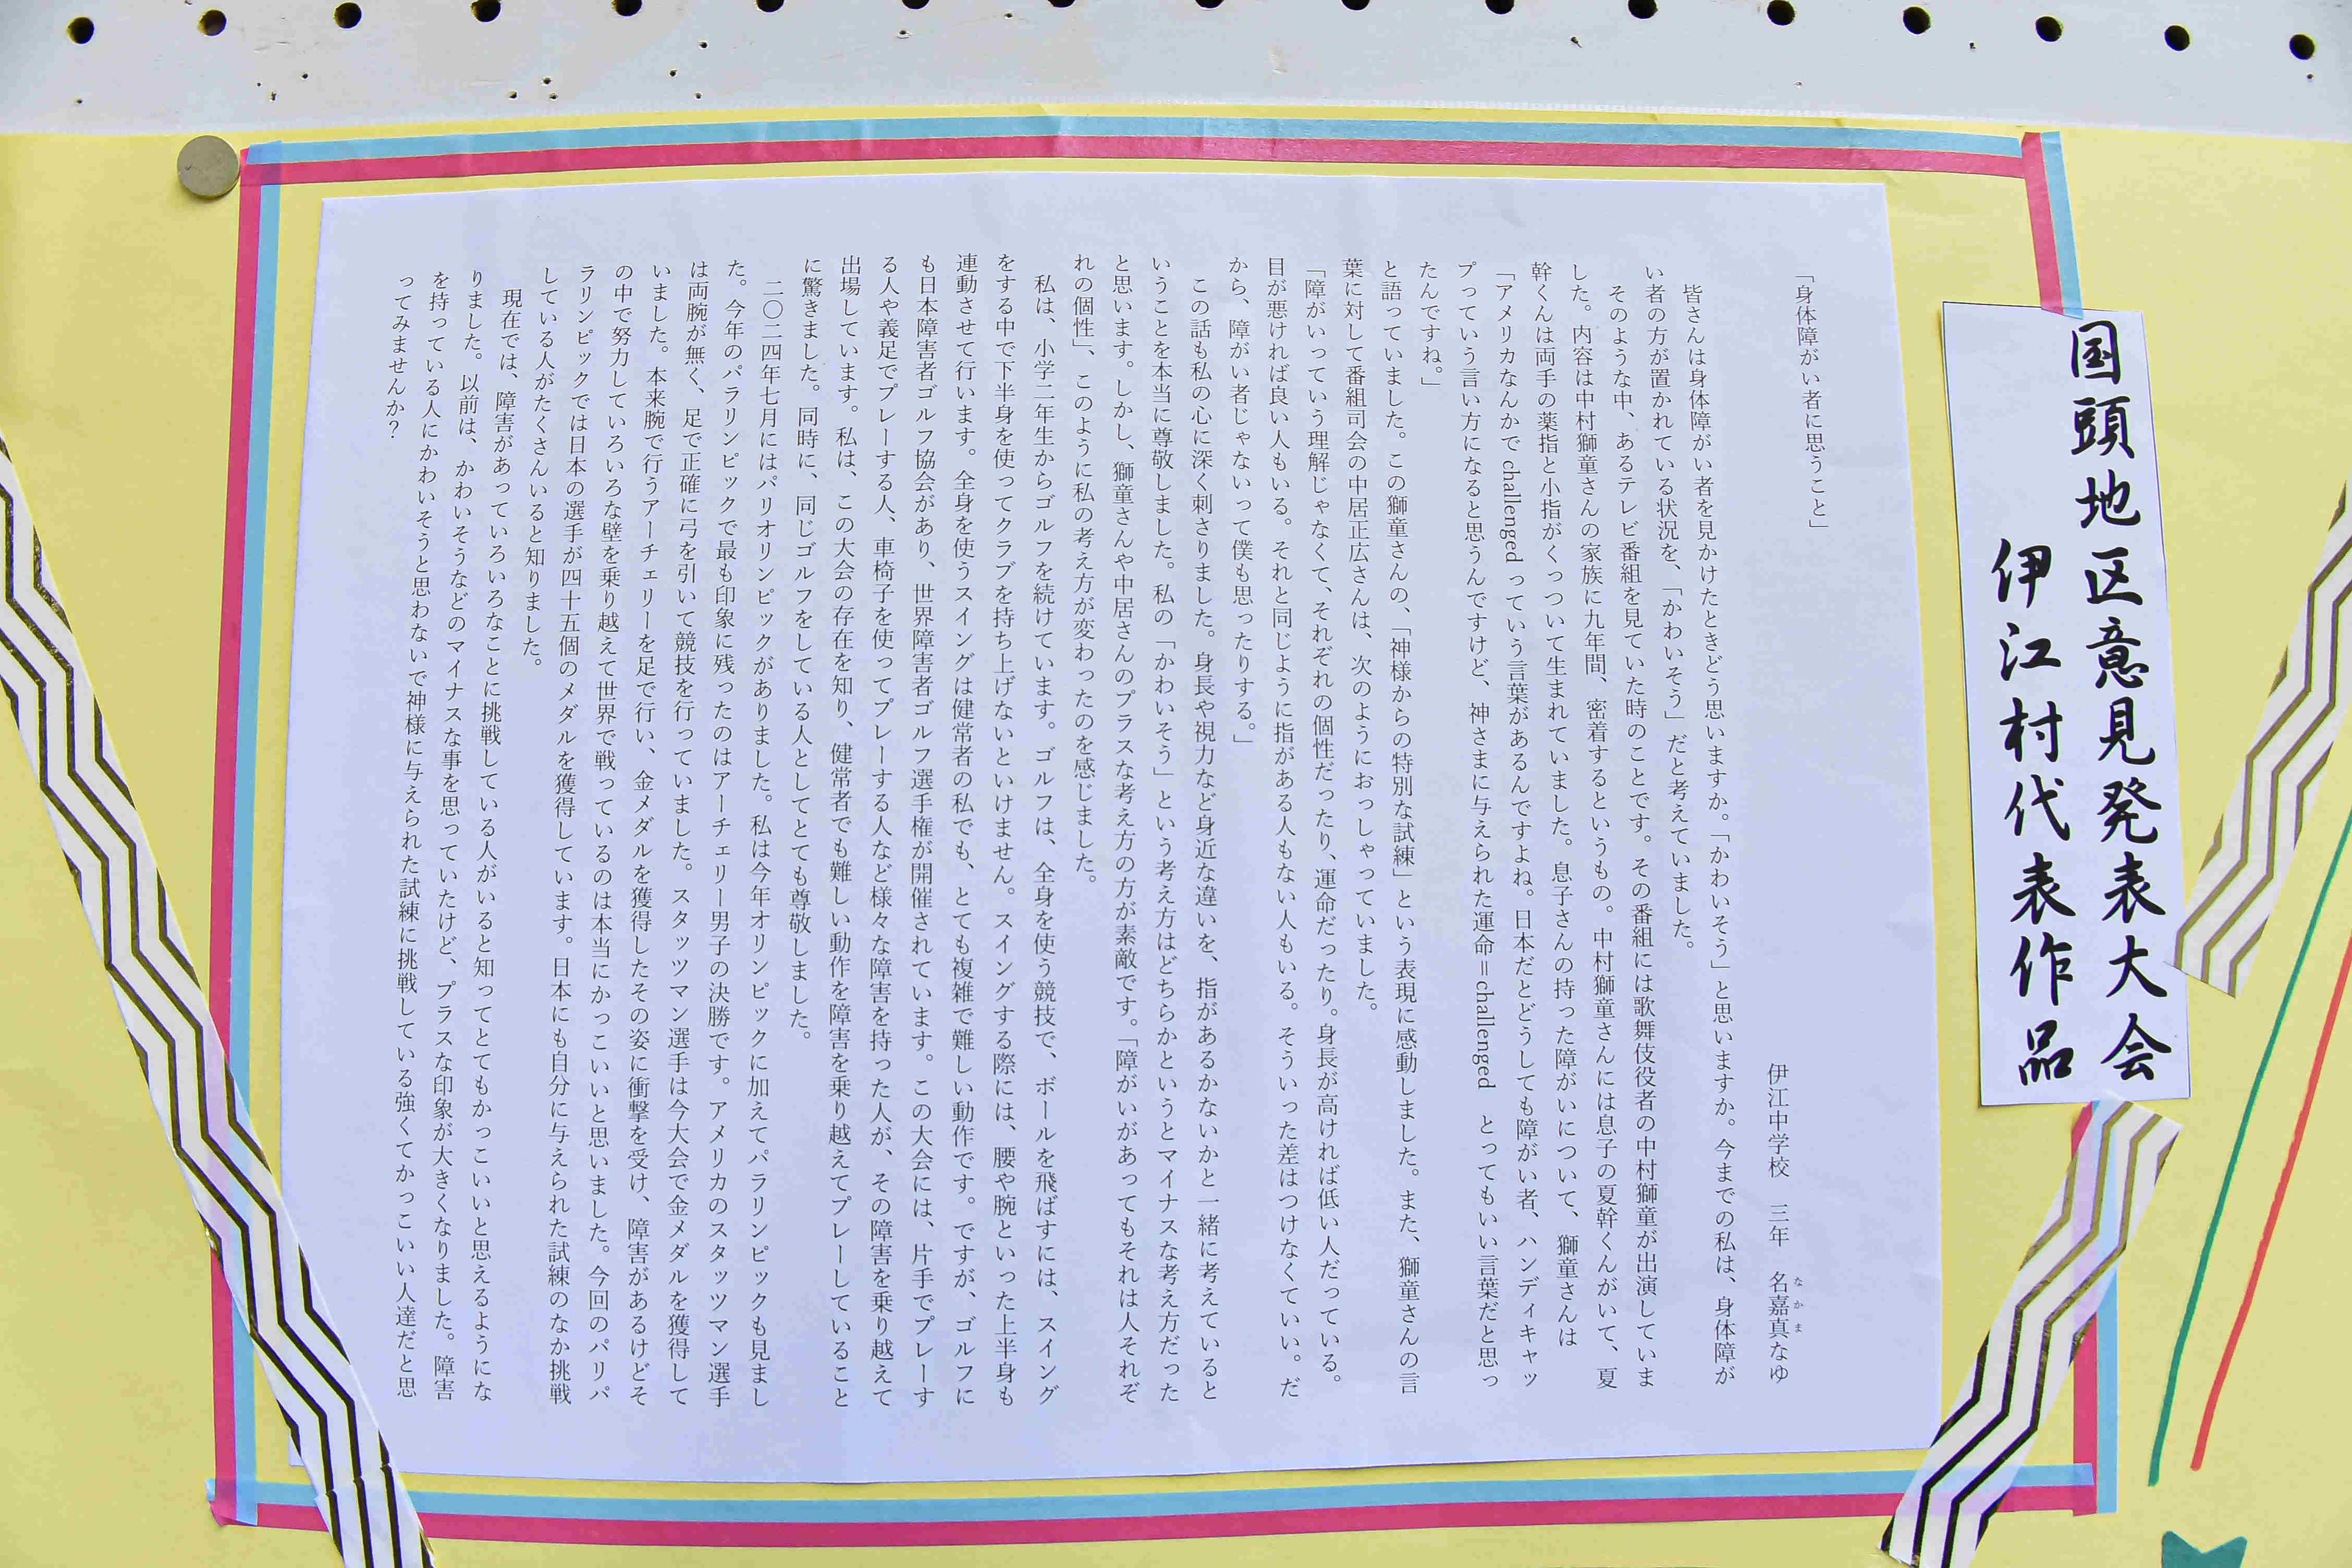 国頭地区意見発表大会
伊江村代表作品
「身体障がい者に思うこと」
伊江中学校　三年　名嘉真なゆ
なかま
皆さんは身体障がい者を見かけたときどう思いますか。「かわいそう」と思いますか。今までの私は、身体障が
い者の方が置かれている状況を、「かわいそう」だと考えていました。
そのような中、あるテレビ番組を見ていた時のことです。その番組には歌舞伎役者の中村獅童が出演していま
した。内容は中村獅童さんの家族に九年間、密着するというもの。中村獅童さんには息子の夏幹くんがいて、夏
幹くんは両手の薬指と小指がくっついて生まれていました。息子さんの持った障がいについて、獅童さんは
「アメリカなんかで challenged っていう言葉があるんですよね。日本だとどうしても障がい者、ハンディキャッ
プっていう言い方になると思うんですけど、神さまに与えられた運命＝challenged　とってもいい言葉だと思っ
たんですね。」
と語っていました。この獅童さんの、「神様からの特別な試練」という表現に感動しました。また、獅童さんの言
葉に対して番組司会の中居正広さんは、次のようにおっしゃっていました。
「障がいっていう理解じゃなくて、それぞれの個性だったり、運命だったり。身長が高ければ低い人だっている。
目が悪ければ良い人もいる。それと同じように指がある人もない人もいる。そういった差はつけなくていい。だ
から、障がい者じゃないって僕も思ったりする。」
この話も私の心に深く刺さりました。身長や視力など身近な違いを、指があるかないかと一緒に考えていると
いうことを本当に尊敬しました。私の「かわいそう」という考え方はどちらかというとマイナスな考え方だった
と思います。しかし、獅童さんや中居さんのプラスな考え方の方が素敵です。「障がいがあってもそれは人それぞ
れの個性」、このように私の考え方が変わったのを感じました。
私は、小学二年生からゴルフを続けています。ゴルフは、全身を使う競技で、ボールを飛ばすには、スイング
をする中で下半身を使ってクラブを持ち上げないといけません。スイングする際には、腰や腕といった上半身も
連動させて行います。全身を使うスイングは健常者の私でも、とても複雑で難しい動作です。ですが、ゴルフに
も日本障害者ゴルフ協会があり、世界障害者ゴルフ選手権が開催されています。この大会には、片手でプレーす
る人や義足でプレーする人、車椅子を使ってプレーする人など様々な障害を持った人が、その障害を乗り越えて
出場しています。私は、この大会の存在を知り、健常者でも難しい動作を障害を乗り越えてプレーしていること
に驚きました。同時に、同じゴルフをしている人としてとても尊敬しました。
二〇二四年七月にはパリオリンピックがありました。私は今年オリンピックに加えてパラリンピックも見まし
た。今年のパラリンピックで最も印象に残ったのはアーチェリー男子の決勝です。アメリカのスタッツマン選手
は両腕が無く、足で正確に弓を引いて競技を行っていました。スタッツマン選手は今大会で金メダルを獲得して
いました。本来腕で行うアーチェリーを足で行い、金メダルを獲得したその姿に衝撃を受け、障害があるけどそ
の中で努力していろいろな壁を乗り越えて世界で戦っているのは本当にかっこいいと思いました。今回のパリパ
ラリンピックでは日本の選手が四十五個のメダルを獲得しています。日本にも自分に与えられた試練のなか挑戦
している人がたくさんいると知りました。
現在では、障害があっていろいろなことに挑戦している人がいると知ってとてもかっこいいと思えるようにな
りました。以前は、かわいそうなどのマイナスな事を思っていたけど、プラスな印象が大きくなりました。障害
を持っている人にかわいそうと思わないで神様に与えられた試練に挑戦している強くてかっこいい人達だと思
ってみませんか？